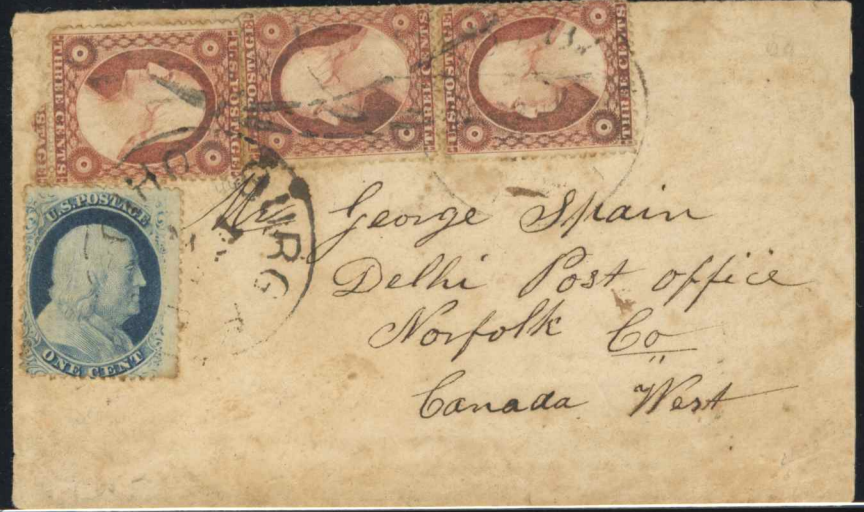 U.S. POSTAGE
THREE CENTS
U.S. POSTAGE
THREE CENTS
U.S. POSTAGE
THREE CENTS
U.S. POSTAGE
ONE CENT
URG
Mr George Spain
Delhi Post office
Norfolk Co
Canada West